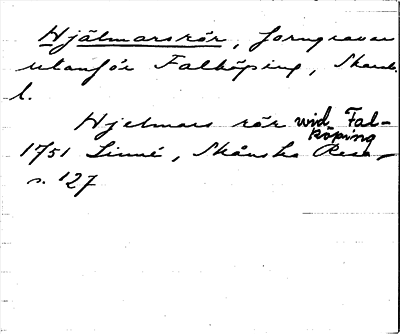 Hjälmarsrör, forngraver
utanför Falköping, Skarab.
l.
Hjelmars rör wid Fal-
köping
1751 Linné, Skånska Resa,
s. 127